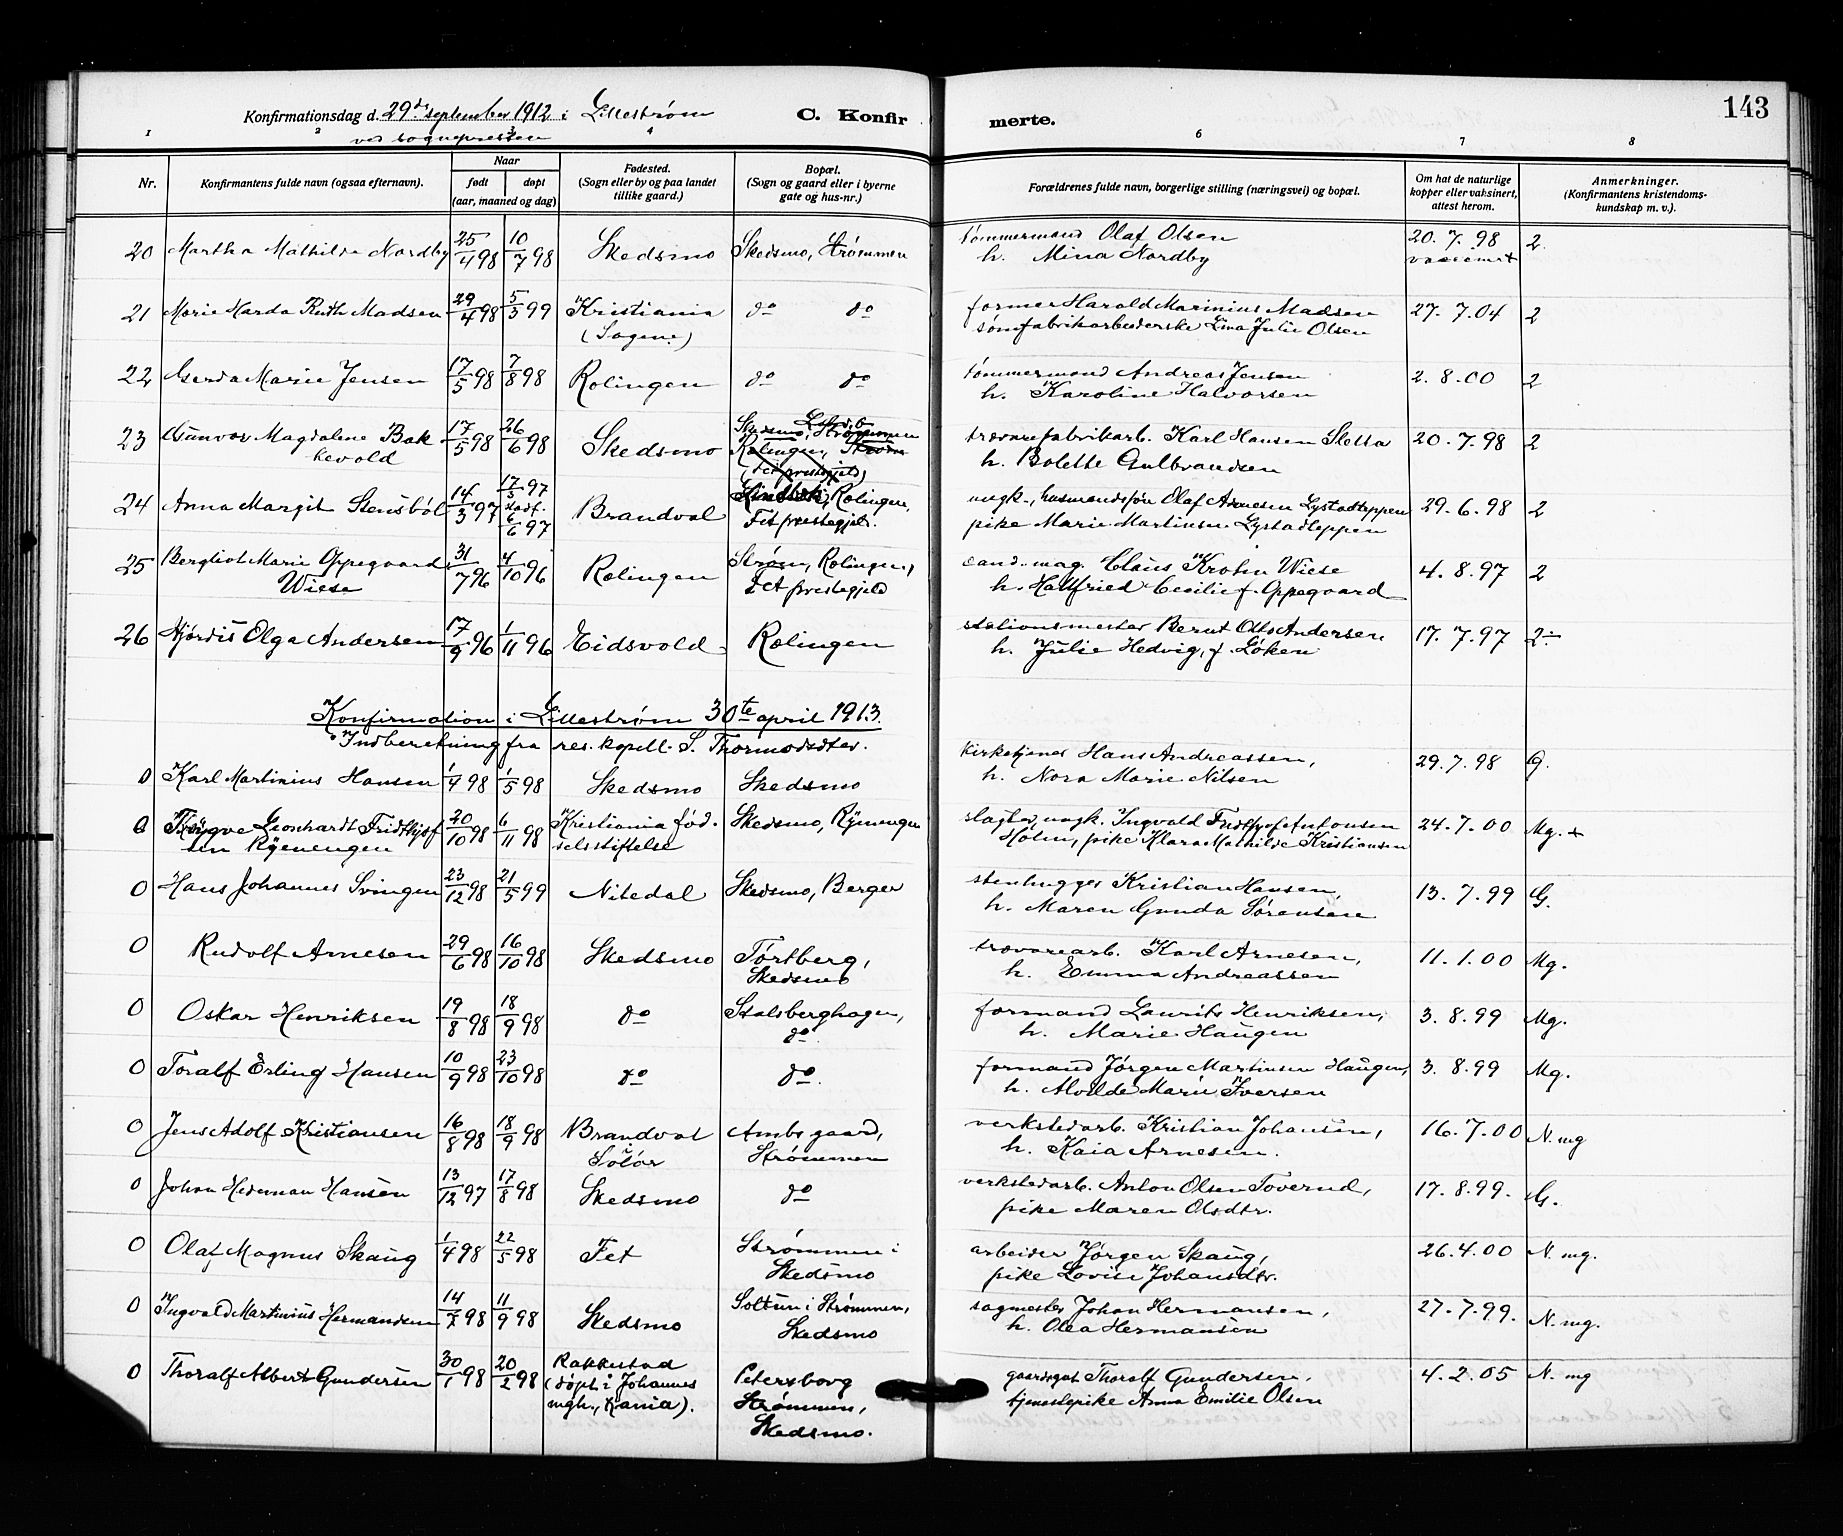 143
Konfirmationsdag d. 29de september 1912 i Lillestrøm C. Konfirmerte.
ved sognepresten
1 2 3 4 6 7 8
Nr. Konfirmantens fulde navn (ogsaa efternavn). Naar født døpt (aar, maaned og dag) Fødested. (Sogn eller by og paa landet tillike gaard.) Bopæl. (Sogn og gaard eller i byerne gate og hus-nr.) Forældrenes fulde navn, borgerlige stilling (næringsvei) og bopæl. Om hat de naturlige kopper eller vaksinert, attest herom. Anmerkninger. (Konfirmantens kristendoms-kundskap m. v.).
20 Martha Mathilde Nordby 25/4 98 10/7 98 Skedsmo Skedsmo, Strømmen tømmermand Olaf Olsen 20. 7. 98 2.
h. Mina Nordby
21 Marie Harda Ruth Madsen 29/4 98 5/3 99 Kristiania do do former Harald Marinius Madsen 27. 7. 04 2
(Sagene) sømfabrikarbeiderske Lina Julie Olsen
22 Gerda Marie Jensen 17/5 98 7/8 98 Rælingen do do tømmermand Andreas Jensen 2. 8. 00 2
h. Karoline Halvorsen
23 Gunvor Magdalene Bakkevold 17/5 98 26/6 98 Skedsmo Skedsmo, Strømmen trævarefabrikarb. Karl Hansen Sletta 20. 7. 98 2
Rælingen,
(Fet prestegjeld)
h. Bolette Gulbrandsen
24 Anna Margit Stensbøl 14/3 97 17/5 97 stadf. 6/6 97 Brandval Rælingen, ungk., husmandssøn Olaf Arnesen Lystadeppen 29. 6. 98 2
Fet prestegjel. pike Marie Martinsen Lystadeppen
25 Bergliot Marie Oppegaard 31/7 96 4/10 96 Rælingen Strøm, Rælingen, cand. mag. Claus Krohn Wiese 4. 8. 97 2
Wiese Fet prestegjeld h. Hallfried Cecilie f. Oppegaard
26 Hjørdis Olga Andersen 17/9 96 1/11 96 Eidsvold Rælingen stationsmester Bernt Otto Andersen 17. 7. 97 2÷
h. Julie Hedvig, f. Løken
Konfirmation i Lillestrøm 30te april 1913.
Indberetning fra res. kapell. S. Thormodsæter.
0 Karl Martinius Hansen 1/4 98 1/5 98 Skedsmo Skedsmo kirketjener Hans Andreassen, 29. 7. 98 G.
h. Nora Marie Nilsen
0 Trygve Leonhardt Fridthjof 20/10 98 6/11 98 Kristiania fød- Skedsmo, Ryenengen slagter, ungk. Ingvald Fridthjof Antonsen 24. 7. 00 Mg. +
Ryenengen selsstiftelse Holm, pike Klara Mathilde Kristiansen
0 Hans Johannes Svingen 23/12 98 21/5 99 Nitedal Skedsmo, Berger stenhugger Kristian Hansen, 13. 7. 99 G.
h. Maren Gunda Sørensen
0 Rudolf Arnesen 29/6 98 16/10 98 Skedsmo Tørtberg, trævarearb. Karl Arnesen, 11. 1. 00 Mg.
Skedsmo h. Emma Andreassen
0 Oskar Henriksen 19/8 98 18/9 98 do Stalsberghagen, formand Laurits Henriksen, 3. 8. 99 Mg.
do. h. Marie Haugen
0 Toralf Erling Hansen 10/9 98 23/10 98 do do. formand Jørgen Martinsen Haugen, 3. 8. 99 Mg.
h. Alvilde Marie Iversen
0 Jens Adolf Kristiansen 16/8 98 18/9 98 Brandval Ambs gaard, verkstedarb. Kristian Johansen, 16. 7. 00 N. mg
Solør Strømmen h. Kaia Arnesen.
0 Johan Herman Hansen 13/12 97 17/8 98 Skedsmo do verkstedarb. Anton Olsen Toverud, 17. 8. 99. G.
pike Maren Olsdtr.
0 Olaf Magnus Skaug 1/4 98 22/5 98 Fet Strømmen i arbeider Jørgen Skaug, 26. 4. 00 N. mg.
Skedsmo pike Lovise Johansdtr.
0 Ingvald Martinius Hermansen 14/7 98 11/9 98 Skedsmo Soltun i Strømmen, sagmester Johan Hermansen, 27. 7. 99. N. mg.
Skedsmo h. Olea Hermansen
0 Thoralf Albert Gundersen 30/1 98 20/2 98 Rakkestad Petersborg gaardsgut Thoralf Gundersen, 4. 2. 05 N. mg
(døpt i Johannes Strømmen, tjenestepike Anna Emilie Olsen
mgh., Kania). Skedsmo.